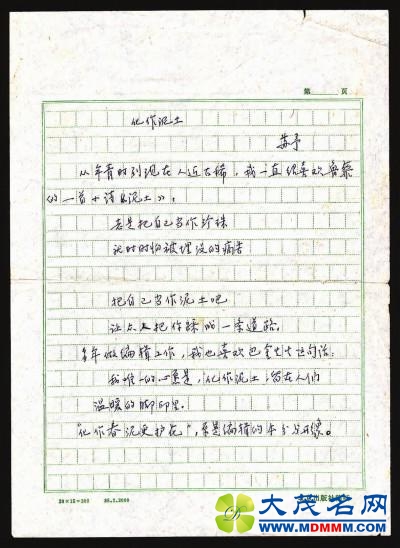 第 页
化作泥土
苏予
从年青时到现在人近古稀，我一直很喜欢鲁藜
的一首小诗《泥土》：
老是把自己当作珍珠
就时时怕被埋没的痛苦
把自己当作泥土吧
让众人把你踩成一条道路。
多年做编辑工作，我也喜欢巴金大大这句话：
我唯一的心愿是，化作泥土，留在人们
温暖的脚印里。
"化作春泥更护花"，
20×15=300
大茂名网
WWW.MDMMM.COM